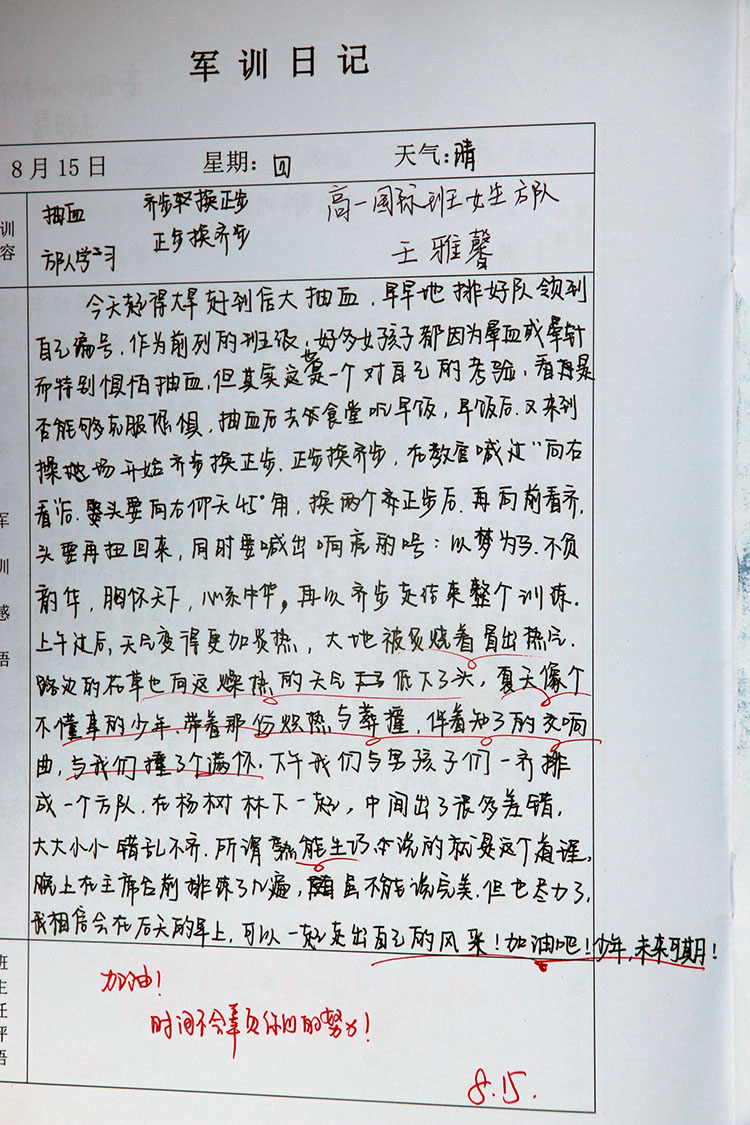 军训日记
8月15日 星期:四 天气:晴
训容
抽血 齐步换正步 高一国际班女生方队
方队学习 正步换齐步 王雅馨
今天起得大早赶到信大抽血,早早地排好队领到
自己编号,作为前列的班级,好多女孩子都因为晕血或晕针
而特别惧怕抽血,但其实这是一个对自己的考验,看自己是
否能够克服恐惧,抽血后去食堂吃早饭,早饭后又来到
操场开始齐步换正步,正步换齐步,在教官喊过"向右
看"后,头要向右仰天45°角,换两个正步后,再向前看齐,
头要再扭回来,同时要喊出响亮的口号:以梦为马,不负
韶华,胸怀天下,心系中华,再以齐步走结束整个训练.
上午过后,天气变得更加炎热,大地被炙烧着冒出热气.
路边的花草也向这燥热的天气低下了头,夏天像个
不懂事的少年,带着那份炽热与莽撞,伴着知了的交响
曲,与我们撞了个满怀.下午我们与男孩子们一齐排
成一个方队,在杨树林下一起,中间出了很多差错,
大大小小错乱不齐.所谓熟能生巧说的就是这个道理,
晚上在主席台前排练了几遍,虽不能说完美,但也尽力了,
我相信会在后天的早上,可以一起走出自己的风采!加油吧!少年,未来可期!
军训感悟
班主任评语
加油!
时间不会辜负你们的努力!
8.15.